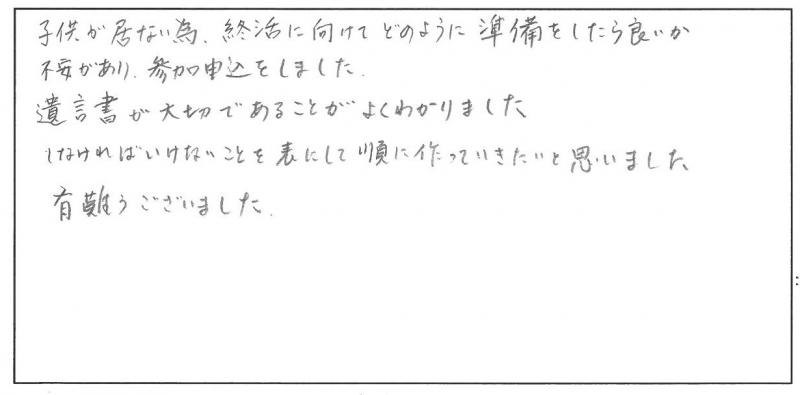 子供が居ない為、終活に向けてどのように準備をしたら良いか
不安があり、参加申込をしました。
遺言書が大切であることがよくわかりました
しなければいけないことを表にして順に作っていきたいと思いました
有難うございました。